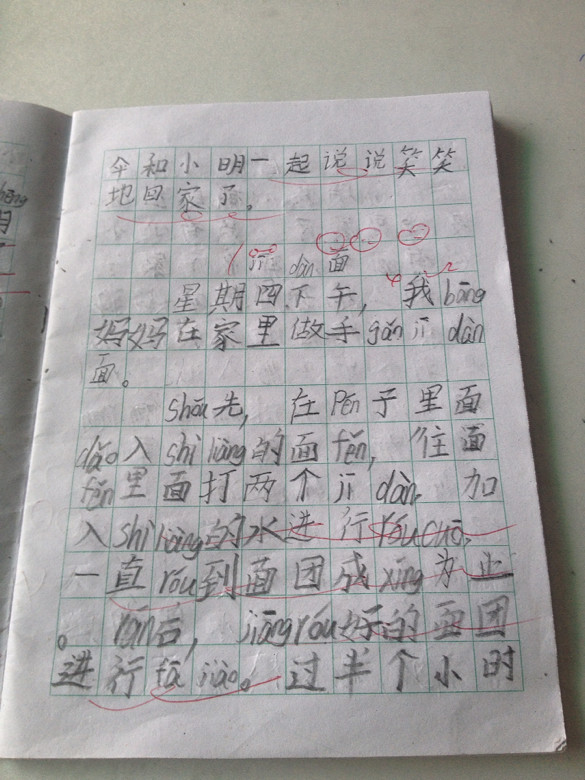 伞和小明一起说说笑笑
地回家了。
jī dàn 面
星期四下午，我bāng
妈妈在家里做手gǎn jī dàn
面。
shǒu先，在Pén子里面
dào入shì liàng的面fěn，往面
fěn里面打两个jī dàn 加
入shì liàng的水进行róu cuō，
一直róu到面团成xíng为止
。rán后，jiāng róu好的面团
进行fā jiào。过半个小时